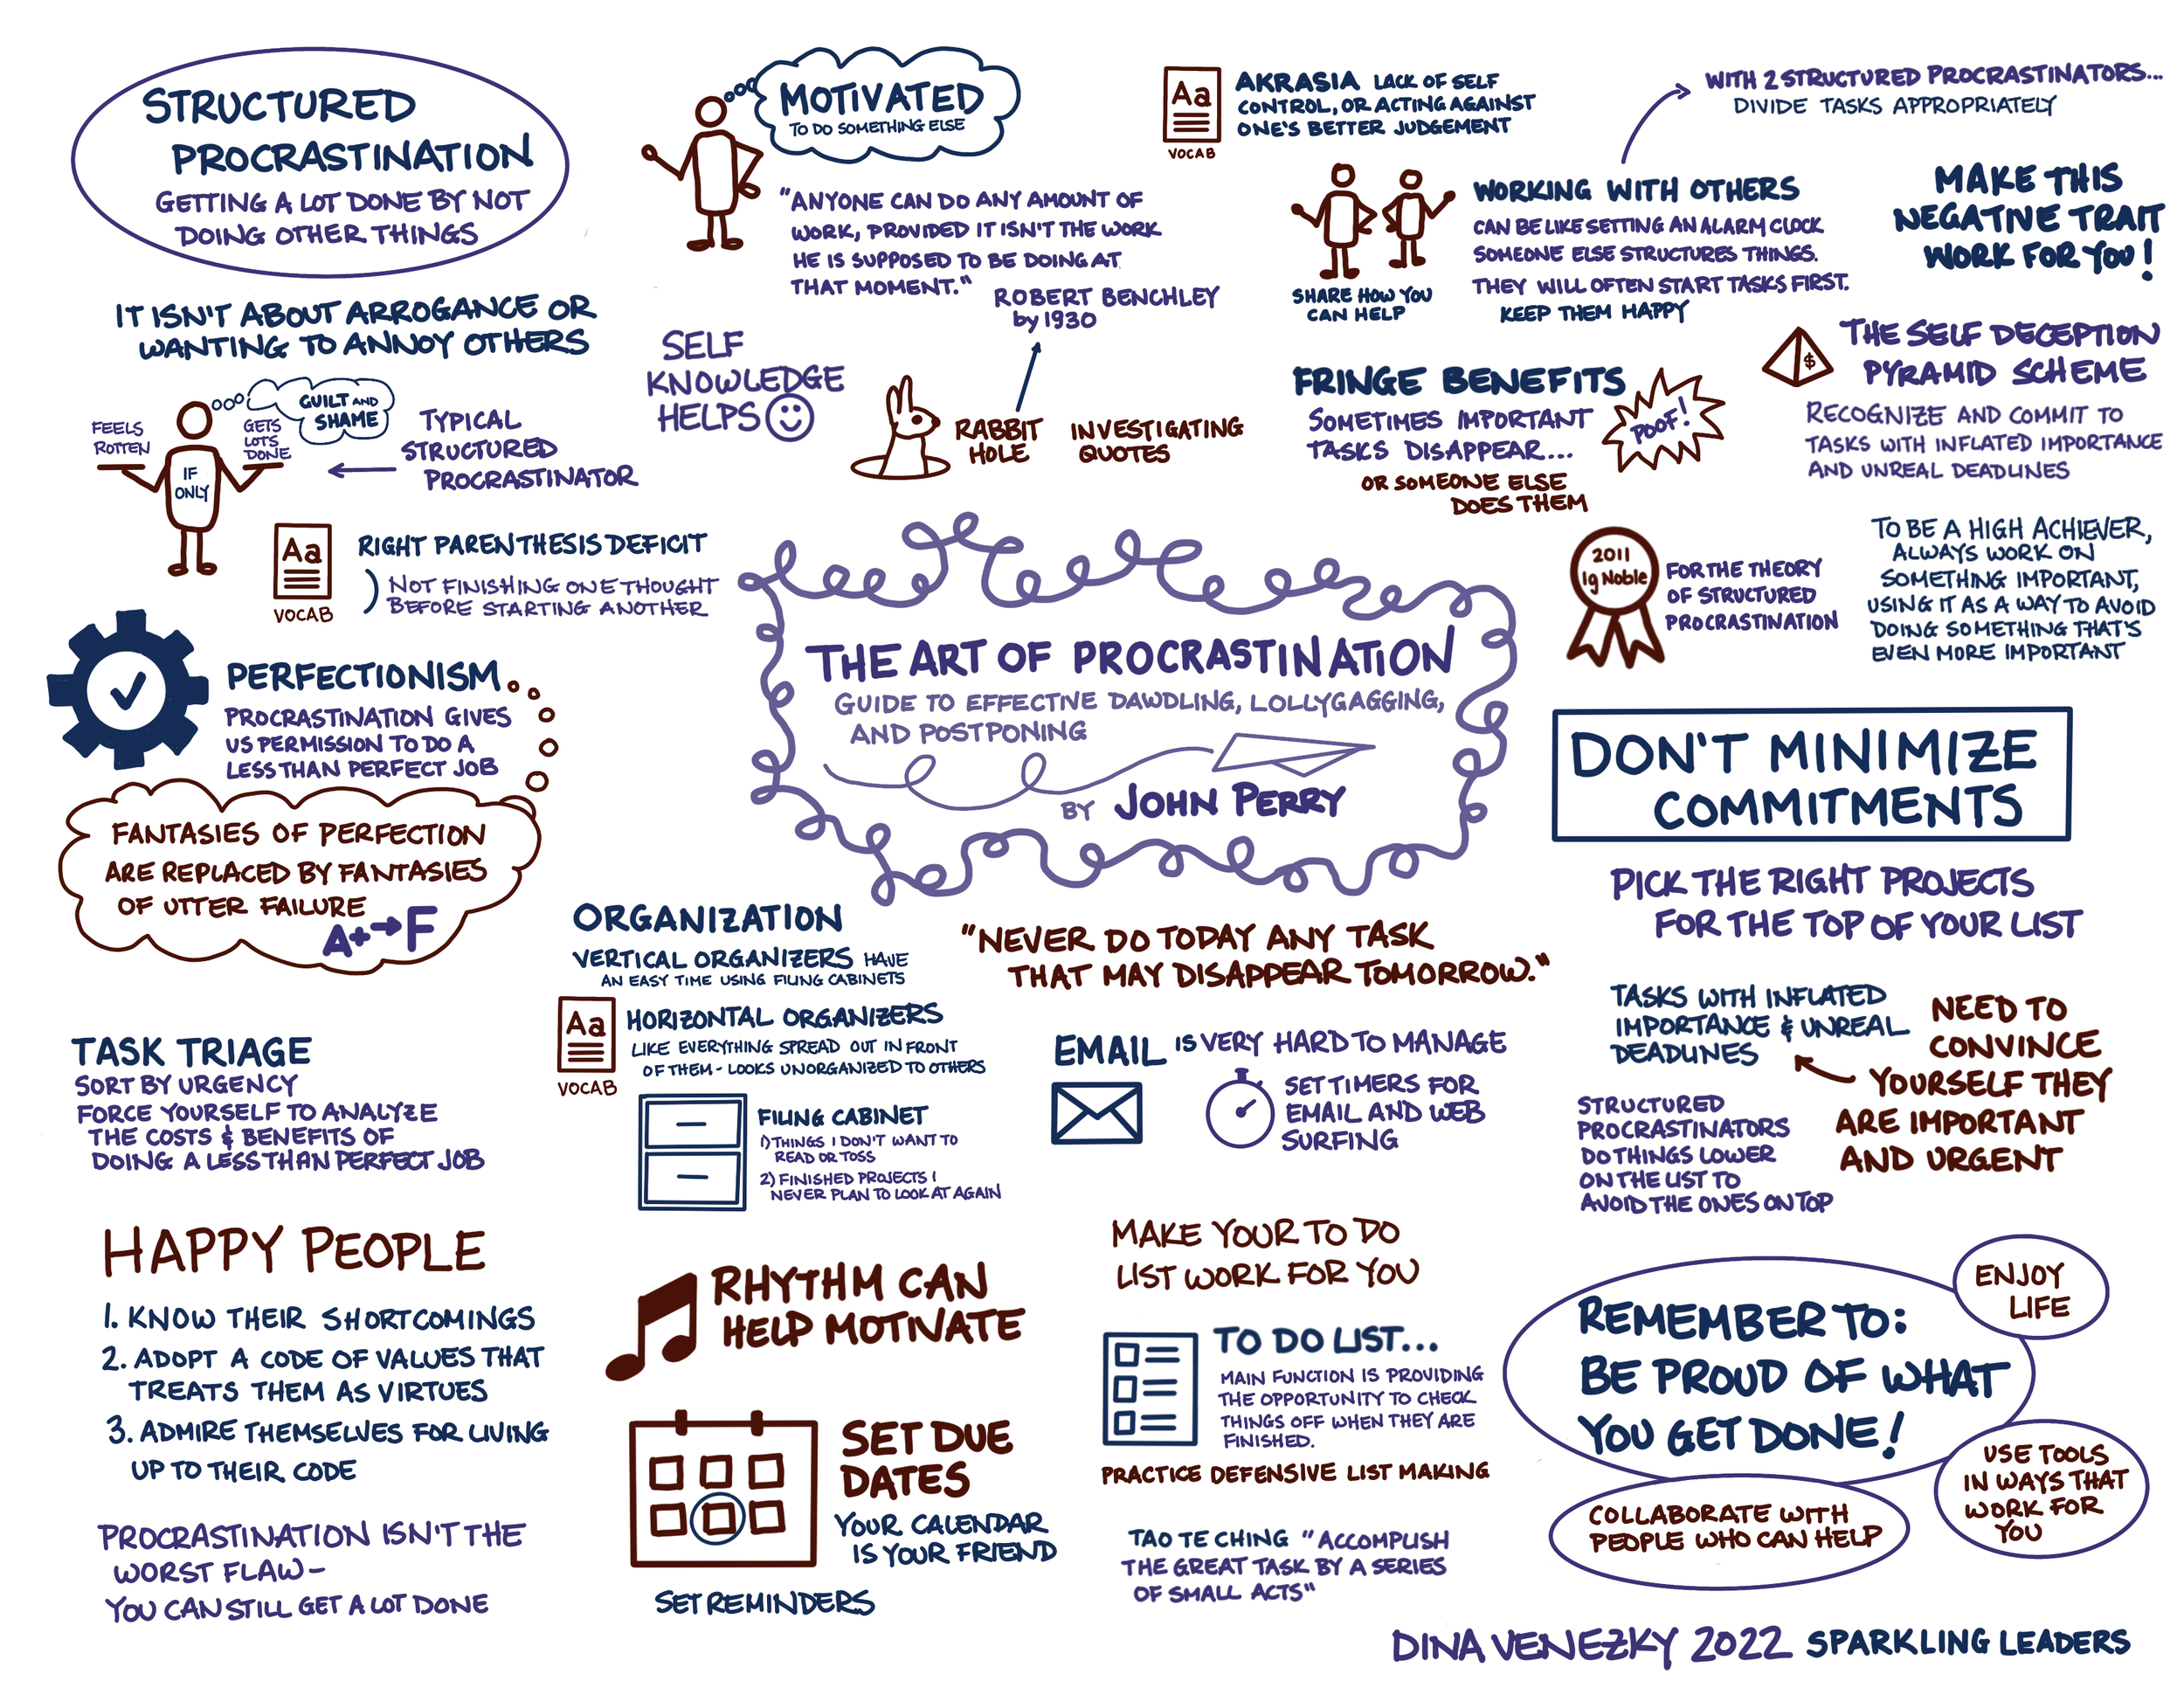 STRUCTURED
PROCRASTINATION
GETTING A LOT DONE BY NOT
DOING OTHER THINGS
IT ISN'T ABOUT ARROGANCE OR
WANTING TO ANNOY OTHERS
FEELS
ROTTEN
GUILT AND
SHAME
GETS
LOTS
DONE
IF
ONLY
TYPICAL
STRUCTURED
PROCRASTINATOR
Aa
VOCAB
RIGHT PARENTHESIS DEFICIT
) NOT FINISHING ONE THOUGHT
BEFORE STARTING ANOTHER
MOTIVATED
TO DO SOMETHING ELSE
"ANYONE CAN DO ANY AMOUNT OF
WORK, PROVIDED IT ISN'T THE WORK
HE IS SUPPOSED TO BE DOING AT
THAT MOMENT."
ROBERT BENCHLEY
by 1930
SELF
KNOWLEDGE
HELPS
RABBIT
HOLE
INVESTIGATING
QUOTES
Aa
VOCAB
AKRASIA LACK OF SELF
CONTROL, OR ACTING AGAINST
ONE'S BETTER JUDGEMENT
WITH 2 STRUCTURED PROCRASTINATORS...
DIVIDE TASKS APPROPRIATELY
SHARE HOW YOU
CAN HELP
WORKING WITH OTHERS
CAN BE LIKE SETTING AN ALARM CLOCK
SOMEONE ELSE STRUCTURES THINGS.
THEY WILL OFTEN START TASKS FIRST.
KEEP THEM HAPPY
MAKE THIS
NEGATIVE TRAIT
WORK FOR YOU!
FRINGE BENEFITS
SOMETIMES IMPORTANT
TASKS DISAPPEAR...
OR SOMEONE ELSE
DOES THEM
POOF!
$
THE SELF DECEPTION
PYRAMID SCHEME
RECOGNIZE AND COMMIT TO
TASKS WITH INFLATED IMPORTANCE
AND UNREAL DEADLINES
2011
Ig Noble
FOR THE THEORY
OF STRUCTURED
PROCRASTINATION
TO BE A HIGH ACHIEVER,
ALWAYS WORK ON
SOMETHING IMPORTANT,
USING IT AS A WAY TO AVOID
DOING SOMETHING THAT'S
EVEN MORE IMPORTANT
THE ART OF PROCRASTINATION
GUIDE TO EFFECTIVE DAWDLING, LOLLYGAGGING,
AND POSTPONING
BY JOHN PERRY
PERFECTIONISM
PROCRASTINATION GIVES
US PERMISSION TO DO A
LESS THAN PERFECT JOB
FANTASIES OF PERFECTION
ARE REPLACED BY FANTASIES
OF UTTER FAILURE
A+→F
DON'T MINIMIZE
COMMITMENTS
PICK THE RIGHT PROJECTS
FOR THE TOP OF YOUR LIST
TASKS WITH INFLATED
IMPORTANCE & UNREAL
DEADLINES
NEED TO
CONVINCE
YOURSELF THEY
ARE IMPORTANT
AND URGENT
STRUCTURED
PROCRASTINATORS
DO THINGS LOWER
ON THE LIST TO
AVOID THE ONES ON TOP
ORGANIZATION
VERTICAL ORGANIZERS HAVE
AN EASY TIME USING FILING CABINETS
Aa
VOCAB
HORIZONTAL ORGANIZERS
LIKE EVERYTHING SPREAD OUT IN FRONT
OF THEM - LOOKS UNORGANIZED TO OTHERS
FILING CABINET
1) THINGS I DON'T WANT TO
READ OR TOSS
2) FINISHED PROJECTS I
NEVER PLAN TO LOOK AT AGAIN
"NEVER DO TODAY ANY TASK
THAT MAY DISAPPEAR TOMORROW."
EMAIL IS VERY HARD TO MANAGE
SET TIMERS FOR
EMAIL AND WEB
SURFING
TASK TRIAGE
SORT BY URGENCY
FORCE YOURSELF TO ANALYZE
THE COSTS & BENEFITS OF
DOING A LESS THAN PERFECT JOB
HAPPY PEOPLE
1. KNOW THEIR SHORTCOMINGS
2. ADOPT A CODE OF VALUES THAT
TREATS THEM AS VIRTUES
3. ADMIRE THEMSELVES FOR LIVING
UP TO THEIR CODE
PROCRASTINATION ISN'T THE
WORST FLAW-
YOU CAN STILL GET A LOT DONE
RHYTHM CAN
HELP MOTIVATE
SET DUE
DATES
YOUR CALENDAR
IS YOUR FRIEND
SET REMINDERS
MAKE YOUR TO DO
LIST WORK FOR YOU
TO DO LIST...
MAIN FUNCTION IS PROVIDING
THE OPPORTUNITY TO CHECK
THINGS OFF WHEN THEY ARE
FINISHED.
PRACTICE DEFENSIVE LIST MAKING
TAO TE CHING "ACCOMPLISH
THE GREAT TASK BY A SERIES
OF SMALL ACTS"
REMEMBER TO:
BE PROUD OF WHAT
YOU GET DONE!
ENJOY
LIFE
USE TOOLS
IN WAYS THAT
WORK FOR
YOU
COLLABORATE WITH
PEOPLE WHO CAN HELP
DINA VENEZKY 2022 SPARKLING LEADERS